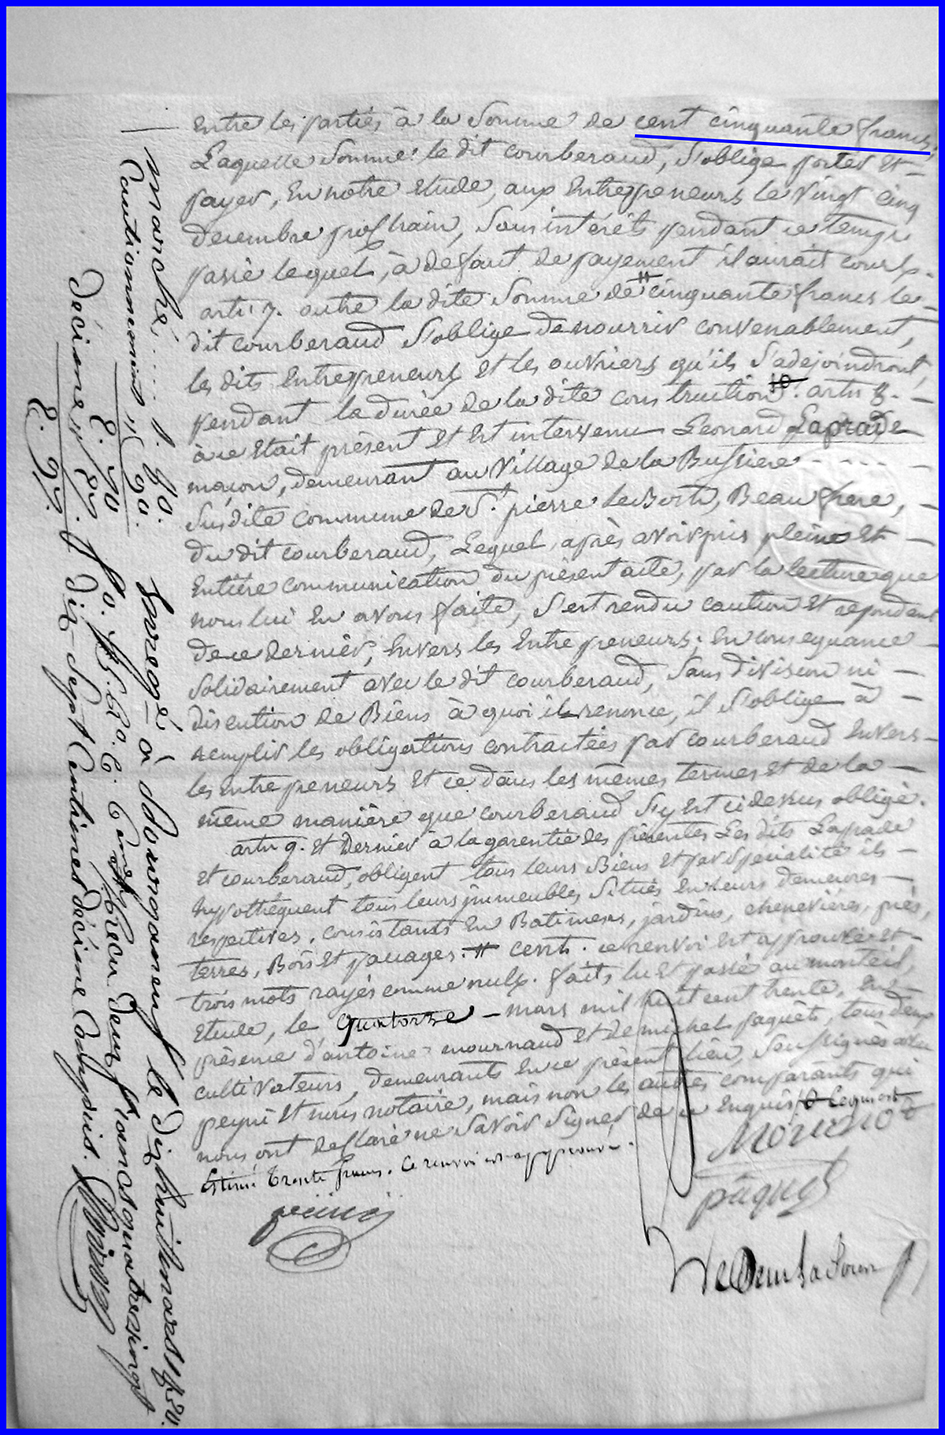 Entre les parties à la Somme de cent cinquante francs,
Laquelle Somme le dit courberaud, S'oblige porter Et
payer, En notre Etude, aux Entrepreneurs le vingt cinq
decembre prochain, Sans intérêts pendant ce temps
passé lequel, à defaut de payement il aurait cours.
artic 7. outre la dite Somme de # cinquante francs le
dit courberaud S'oblige de nourrir convenablement,
les dits Entrepreneurs et les ouvriers qu'ils S'adejoindront,
pendant la durée de la dite construction. artic 8.
à ce Etait présent Et Est intervenu Leonard Laprade
macon, demeurant au Village de la Bussiere
Susdite commune de St. pierre le Bost, Beau frere,
du dit courberaud, Lequel, après avoir pris pleine Et
Entière communication du présent acte, par la lecture que
nous lui En avons faite, S'est rendu caution Et repondant
de ce dernier, Envers les Entrepreneurs; En consequance
Solidairement avec le dit courberaud, Sans division ni
discution de Biens à quoi il renonce, il S'oblige à
remplir les obligations contractées par courberaud Envers
les Entrepreneurs Et ce dans les mêmes termes Et de la
même manière que courberaud S'y Est ci dessus obligé.
artic 9. Et Dernier à la garentie des présentes Les dits Laprade
Et courberaud, obligent tous leurs Biens Et par Spécialité ils
hypothèquent tous leurs immeubles Situés En leurs demeures
respectives, consistants En Batimens, jardins, chenevières, près,
terres, Bois Et pacages. # cent. ce renvoi Est approuvé Et
trois mots rayés comme nuls. fait, lu Et passé au monteil,
Etude, le quatorze mars mil huit cent trente, En
présence d'antoine mournaud et de michel paquet, tous deux
cultivateurs, demeurants En ce présent lieu, Soussignés avec
peyni Et nous notaire, mais non les autres comparants qui
nous ont declaré ne Savoir Signer de ce Enquis
Estimé trente francs. Ce renvoi est approuvé.
paquet
marché 1. 80.
Cautionnement " 90.
E. 90
décime " 27.
E. 97.
Enregé à le dix huit mars 1830.
fo. Ro. C. Recu deux francs quatrevingt
dix-sept Centimes décime Compris.